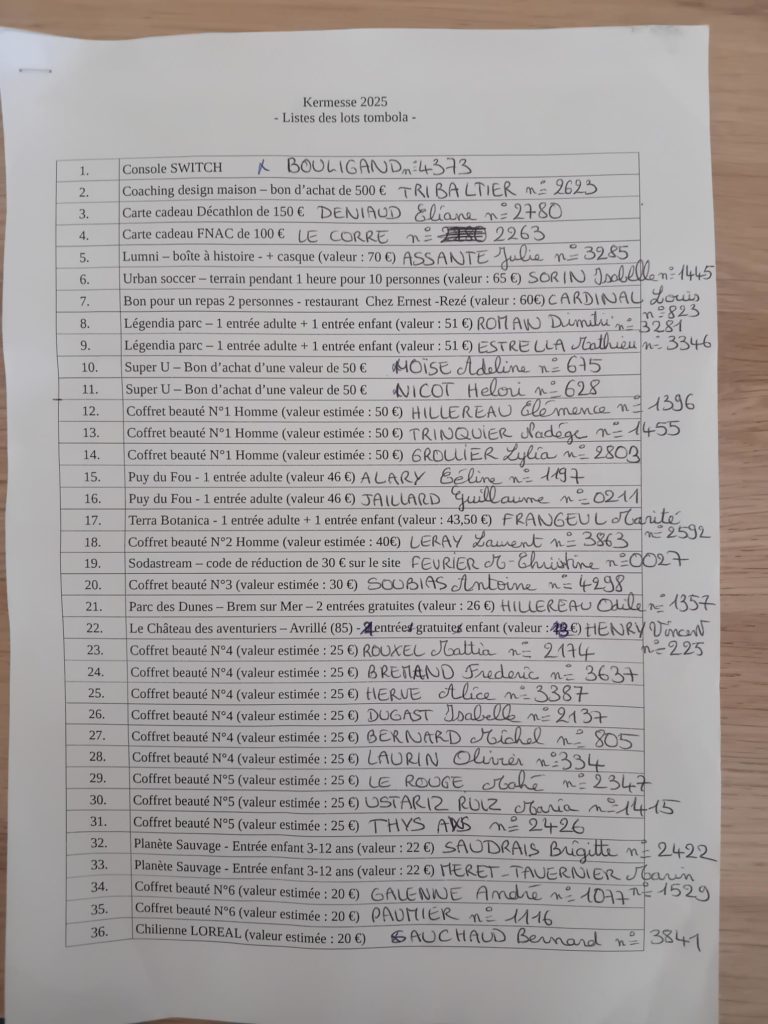 Kermesse 2025
- Listes des lots tombola -
1. Console SWITCH BOULIGAND n° 4373
2. Coaching design maison – bon d'achat de 500 € TRIBALTIER n° 2623
3. Carte cadeau Décathlon de 150 € DENIAUD Eliane n° 2780
4. Carte cadeau FNAC de 100 € LE CORRE n° 2263
5. Lumni – boîte à histoire - + casque (valeur : 70 €) ASSANTE Julie n° 3285
6. Urban soccer – terrain pendant 1 heure pour 10 personnes (valeur : 65 €) SORIN Isabelle n° 1445
7. Bon pour un repas 2 personnes - restaurant Chez Ernest -Rezé (valeur : 60€) CARDINAL Louis
n° 823
8. Légendia parc – 1 entrée adulte + 1 entrée enfant (valeur : 51 €) ROMAIN Dimitri n° 3281
9. Légendia parc – 1 entrée adulte + 1 entrée enfant (valeur : 51 €) ESTRELLA Mathieu n° 3346
10. Super U – Bon d'achat d'une valeur de 50 € MOÏSE Adeline n° 675
11. Super U – Bon d'achat d'une valeur de 50 € NICOT Helori n° 628
12. Coffret beauté N°1 Homme (valeur estimée : 50 €) HILLEREAU Clémence n° 1396
13. Coffret beauté N°1 Homme (valeur estimée : 50 €) TRINQUIER Nadège n° 1455
14. Coffret beauté N°1 Homme (valeur estimée : 50 €) GROLLIER Lylia n° 2803
15. Puy du Fou - 1 entrée adulte (valeur 46 €) ALARY Céline n° 1197
16. Puy du Fou - 1 entrée adulte (valeur 46 €) JAILLARD Guillaume n° 0211
17. Terra Botanica - 1 entrée adulte + 1 entrée enfant (valeur : 43,50 €) FRANGEUL Marité
n° 2592
18. Coffret beauté N°2 Homme (valeur estimée : 40€) LERAY Laurent n° 3863
19. Sodastream – code de réduction de 30 € sur le site FEVRIER M-Christine n° 0027
20. Coffret beauté N°3 (valeur estimée : 30 €) SOUBIAS Antoine n° 4298
21. Parc des Dunes – Brem sur Mer – 2 entrées gratuites (valeur : 26 €) HILLEREAU Odile n° 1357
22. Le Château des aventuriers – Avrillé (85) - entrée gratuite enfant (valeur : €) HENRY Vincent
n° 225
23. Coffret beauté N°4 (valeur estimée : 25 €) ROUXEL Mattia n° 2174
24. Coffret beauté N°4 (valeur estimée : 25 €) BREMAND Frederic n° 3637
25. Coffret beauté N°4 (valeur estimée : 25 €) HERVE Alice n° 3387
26. Coffret beauté N°4 (valeur estimée : 25 €) DUGAST Isabelle n° 2137
27. Coffret beauté N°4 (valeur estimée : 25 €) BERNARD Michel n° 805
28. Coffret beauté N°4 (valeur estimée : 25 €) LAURIN Olivier n° 334
29. Coffret beauté N°5 (valeur estimée : 25 €) LE ROUGE Mahé n° 2347
30. Coffret beauté N°5 (valeur estimée : 25 €) USTARIZ RUIZ Maria n° 1415
31. Coffret beauté N°5 (valeur estimée : 25 €) THYS n° 2426
32. Planète Sauvage - Entrée enfant 3-12 ans (valeur : 22 €) SAUDRAIS Brigitte n° 2422
33. Planète Sauvage - Entrée enfant 3-12 ans (valeur : 22 €) MERET-TAVERNIER Marin
n° 1529
34. Coffret beauté N°6 (valeur estimée : 20 €) GALENNE André n° 1077
35. Coffret beauté N°6 (valeur estimée : 20 €) PAUMIER n° 1116
36. Chilienne LOREAL (valeur estimée : 20 €) GAUCHAUD Bernard n° 3841